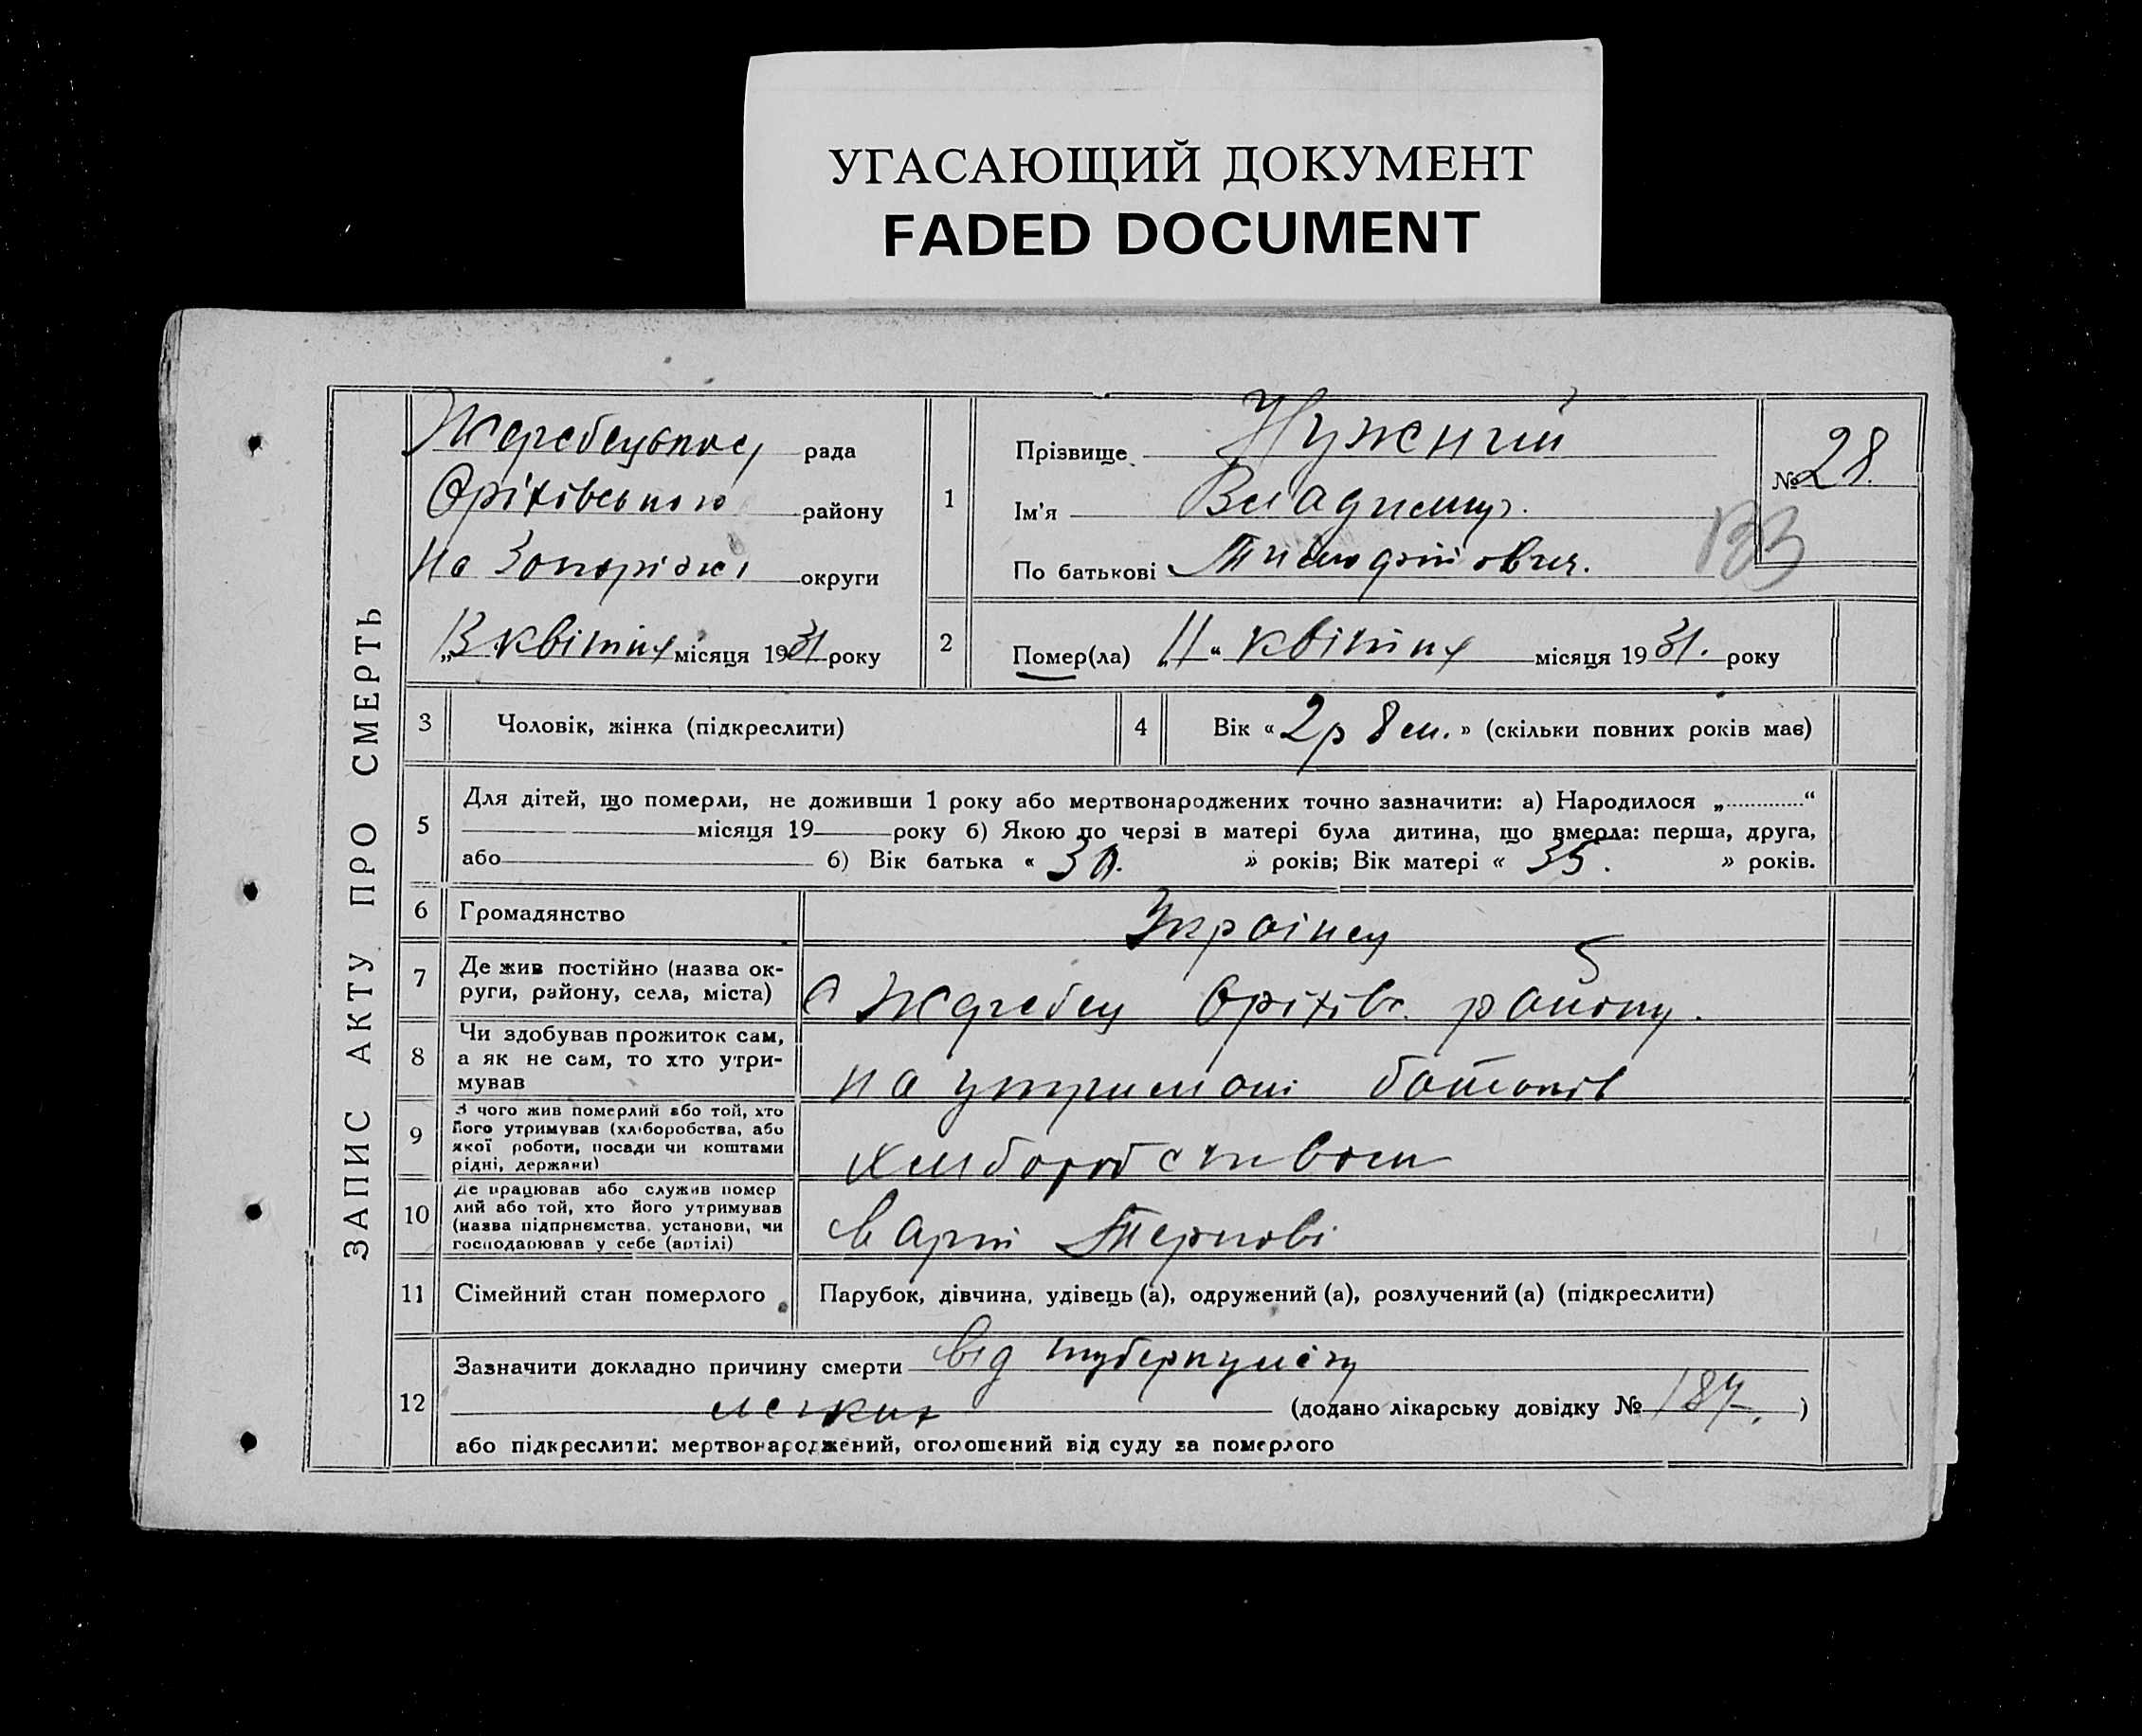 УГАСАЮЩИЙ ДОКУМЕНТ
FADED DOCUMENT
ЗАПИС АКТУ ПРО СМЕРТЬ
рада
Оріхівського району
На Запоріжі округи
„13 квітня місяця 1931 року
1
Прізвище Нужний
Ім'я Владимир.
По батькові
№ 28.
133
2
Помер(ла) „11“ квітня місяця 1931. року
3 Чоловік, жінка (підкреслити)
4 Вік « 2р 8 м. » (скільки повних років має)
5 Для дітей, що померли, не доживши 1 року або мертвонароджених точно зазначити: а) Народилося „ “
місяця 19 року б) Якою по черзі в матері була дитина, що вмерла: перша, друга,
або б) Вік батька « 30. » років; Вік матері « 35. » років.
6 Громадянство Украінец
7 Де жив постійно (назва ок-
руги, району, села, міста) с Жеребец Оріхівс. району.
8 Чи здобував прожиток сам,
а як не сам, то хто утри-
мував на утримані батьків
9 З чого жив померлий або той, хто
його утримував (хліборобства, або
якої роботи, посади чи коштами
рідні, держави) хліборобством
10 Де працював або служив помер
лий або той, хто його утримував
(назва підприємства, установи, чи
господарював у себе (артілі) в
11 Сімейний стан померлого Парубок, дівчина, удівець (а), одружений (а), розлучений (а) (підкреслити)
12 Зазначити докладно причину смерти від туберкульозу
легких (додано лікарську довідку № 187. )
або підкреслити: мертвонароджений, оголошений від суду за померлого